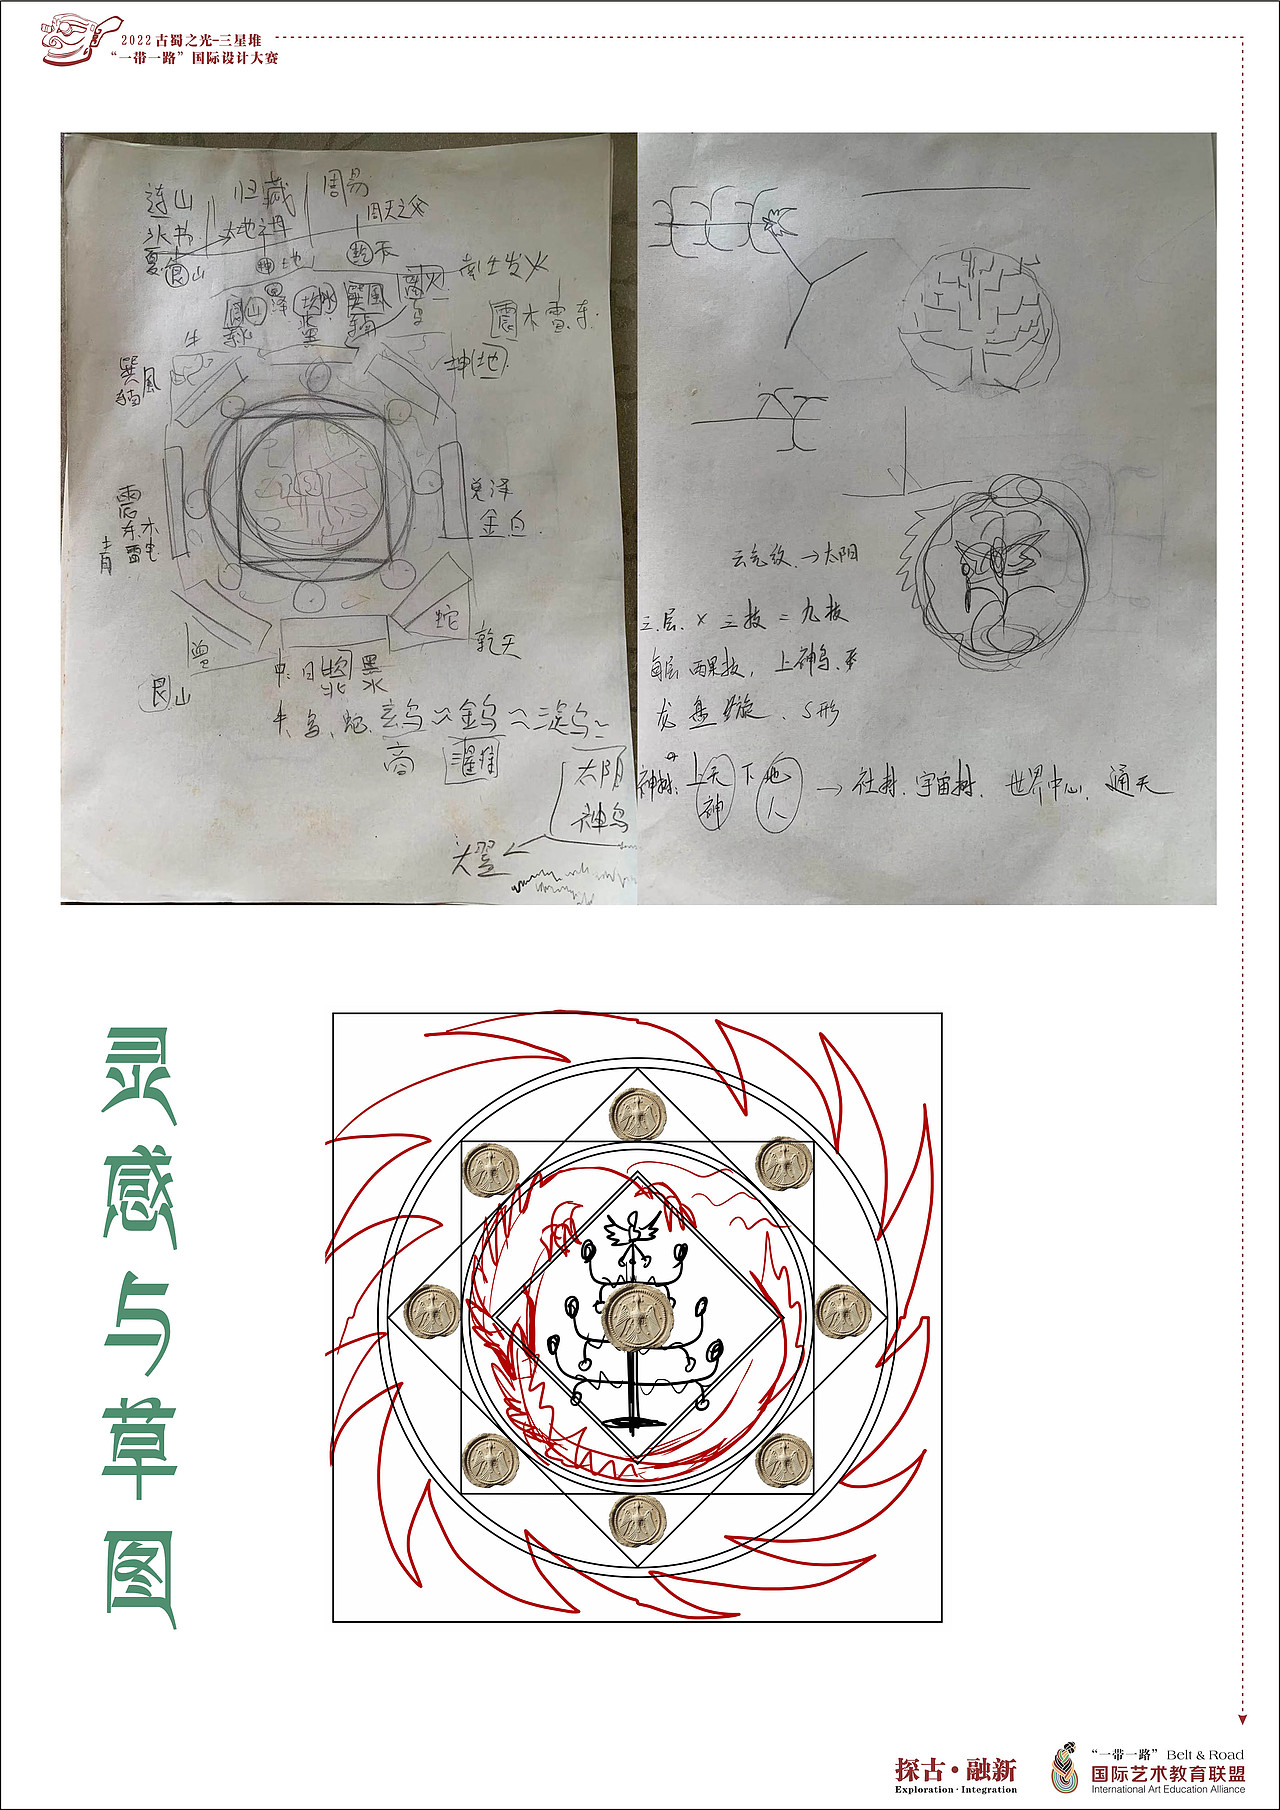 2022古蜀之光-三星堆
“一带一路”国际设计大赛
连山
归藏
周易
大地之母
周天之父
艮山
坤 地
乾 天
离火
艮山
坎
巽風
震木雷 东
牛
坤地
巽
風
兑泽
金 白
震
东木
雷电
青
蛇
乾天
艮山
墨
水
牛 鸟 蛇
玄鸟
金鸟
商
太阳
神鸟
云气纹 → 太阳
三层 × 三枝 = 九枝
每层两果枝, 上神鸟
龙盘 旋, S形
神树 上天 下地
神
人
→ 社树. 宇宙树. 世界中心. 通天
灵感与草图
探古·融新
Exploration · Integration
“一带一路” Belt & Road
国际艺术教育联盟
International Art Education Alliance